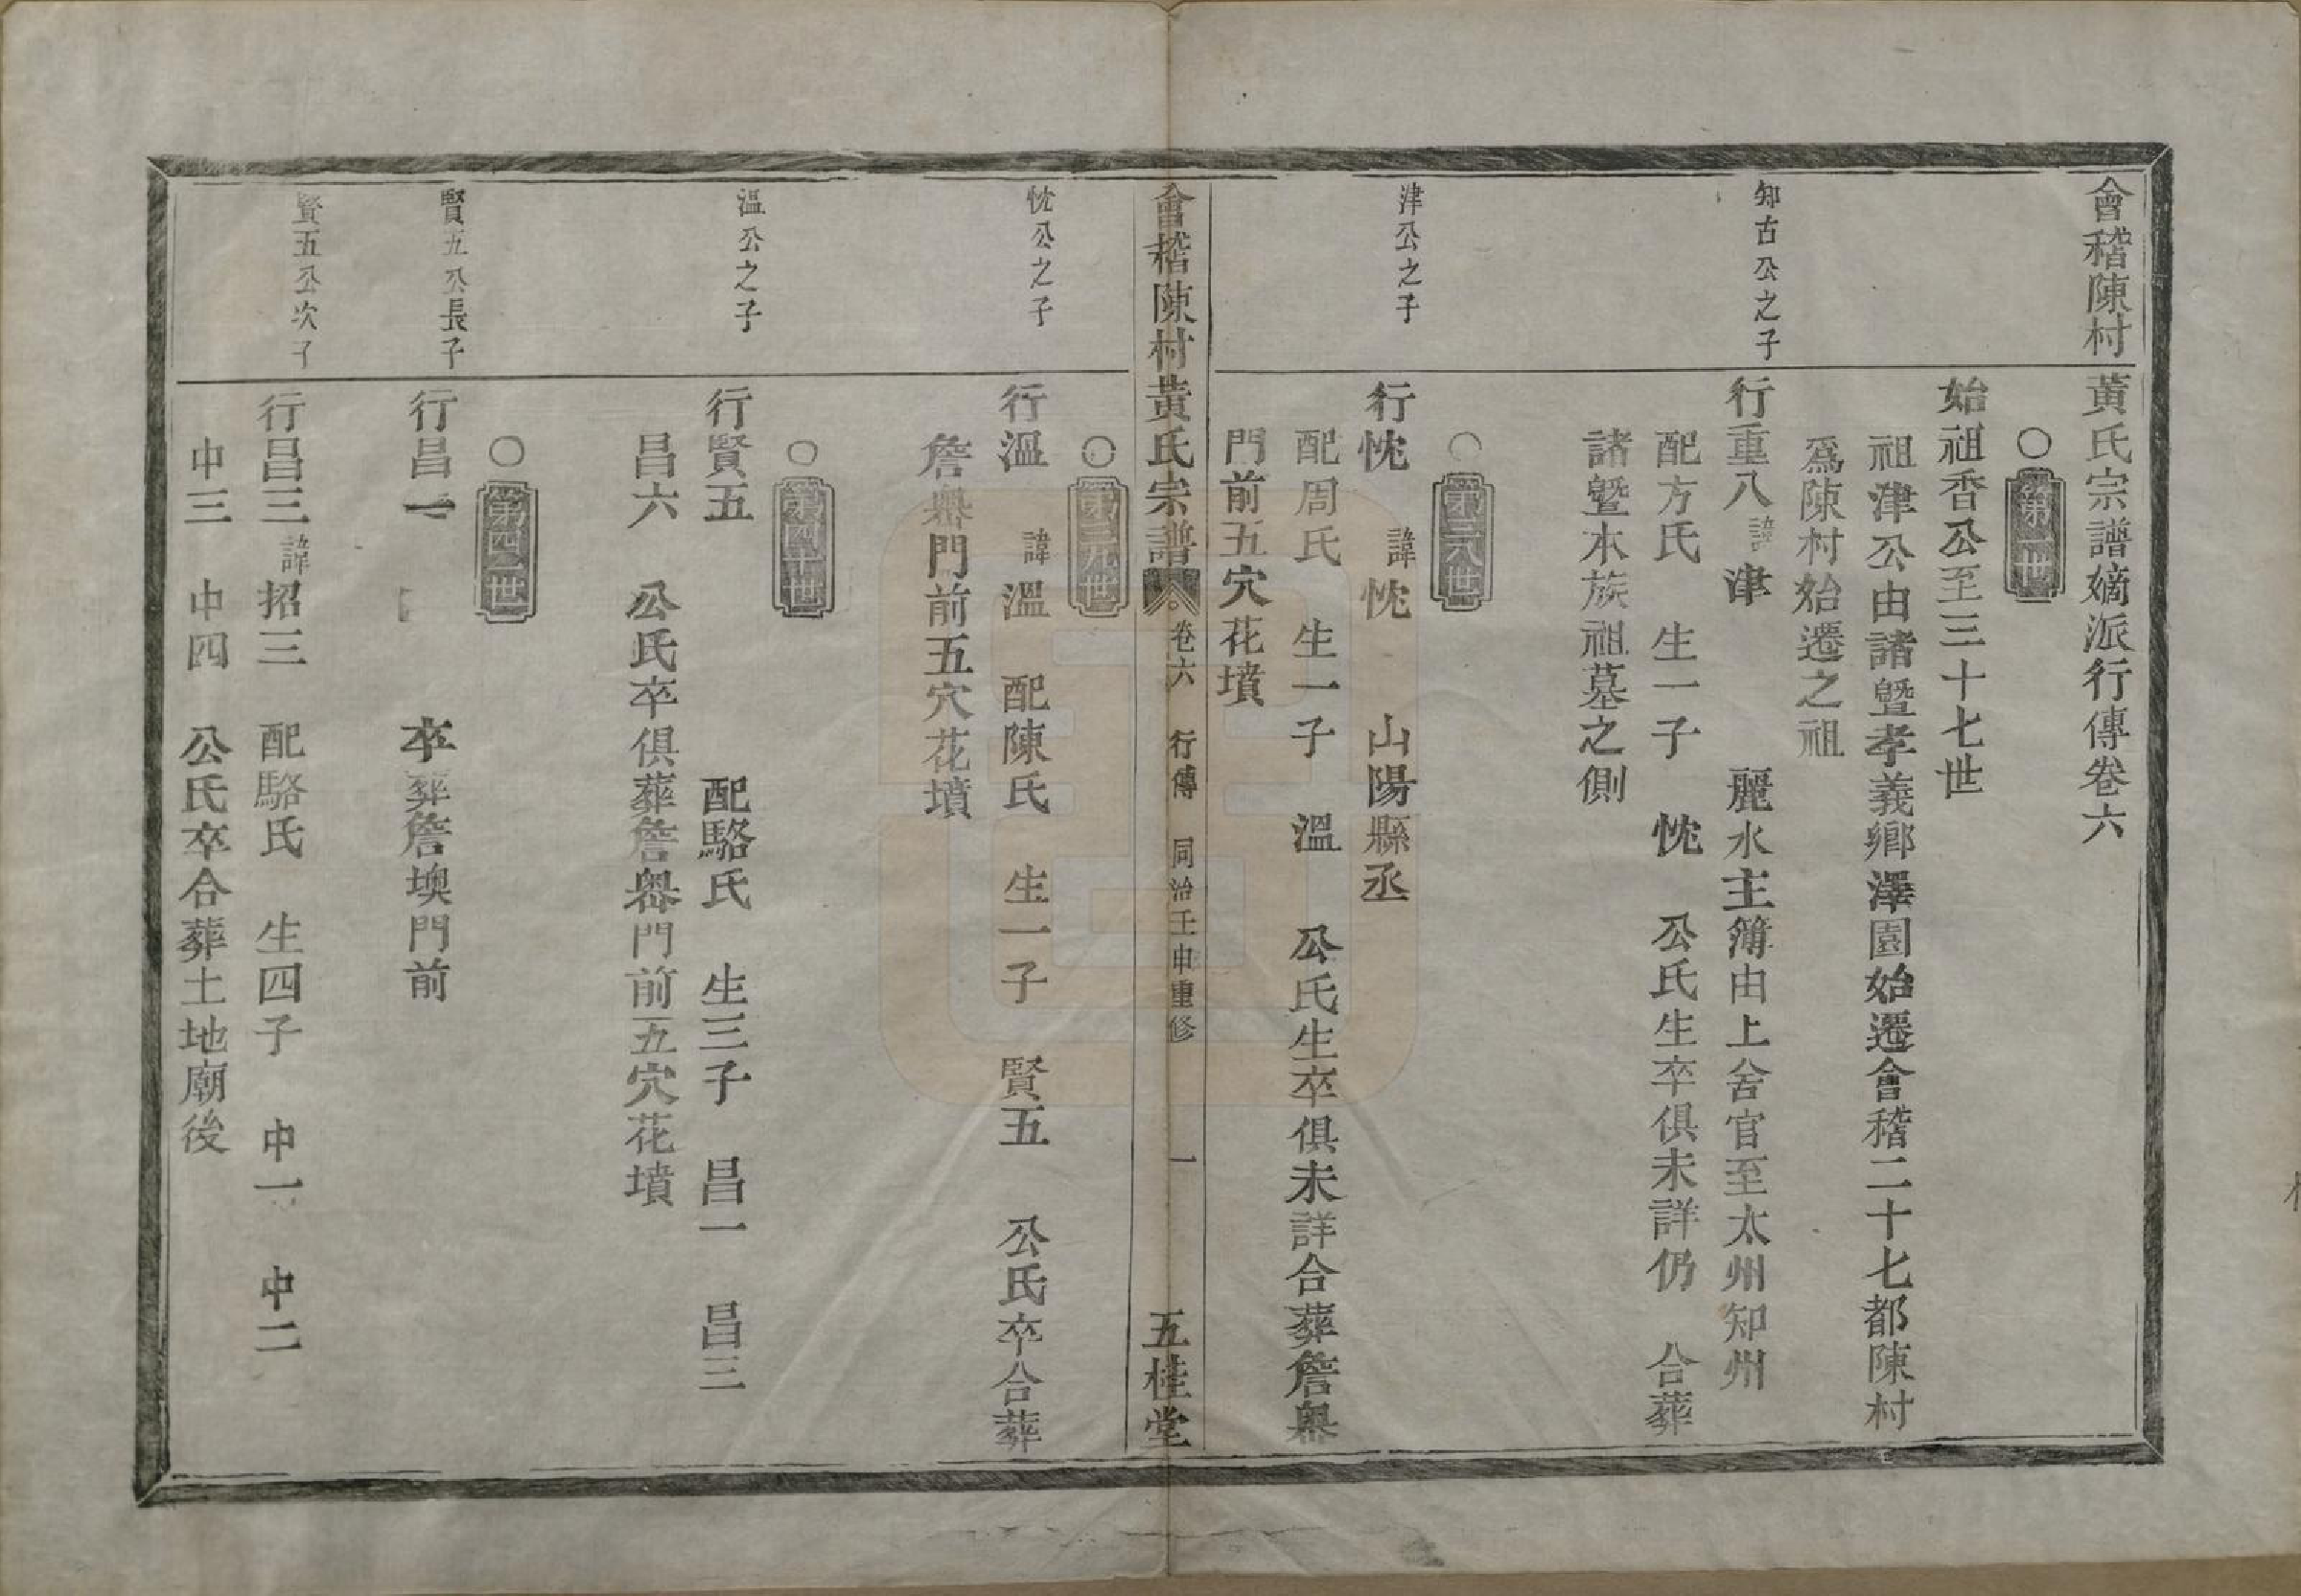 會稽陳村黃氏宗譜嫡派行傳卷六
○第一世
始祖香公至三十七世
祖津公由諸暨孝義鄉澤園始遷會稽二十七都陳村
爲陳村始遷之祖
知古公之子
行重八諱津 麗水主簿由上舍官至太州知州
配方氏 生一子 忱 公氏生卒俱未詳仍 合葬
諸暨本族祖墓之側
○第三八世
津公之子
行忱 諱忱 山陽縣丞
配周氏 生一子 溫 公氏生卒俱未詳合葬詹嶴
門前五穴花墳
會稽陳村黃氏宗譜 卷六 行傳 同治壬申重修 一 五桂堂
○第三九世
忱公之子
行溫 諱溫 配陳氏 生一子 賢五 公氏卒合葬
詹嶴門前五穴花墳
○第四十世
溫公之子
行賢五 配駱氏 生三子 昌一 昌三
昌六 公氏卒俱葬詹嶴門前五穴花墳
○第四一世
賢五公長子
行昌一 卒葬詹墺門前
賢五公次子
行昌三諱招三 配駱氏 生四子 中一 中二
中三 中四 公氏卒合葬土地廟後